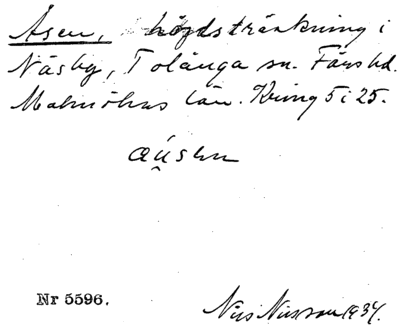 Åsen, höjdsträckning i
Näsby, Tolånga sn. Färs hd.
Malmöhus län. Kring 5 i 25.
Nr 5596.
Nils Nilsson 1934.